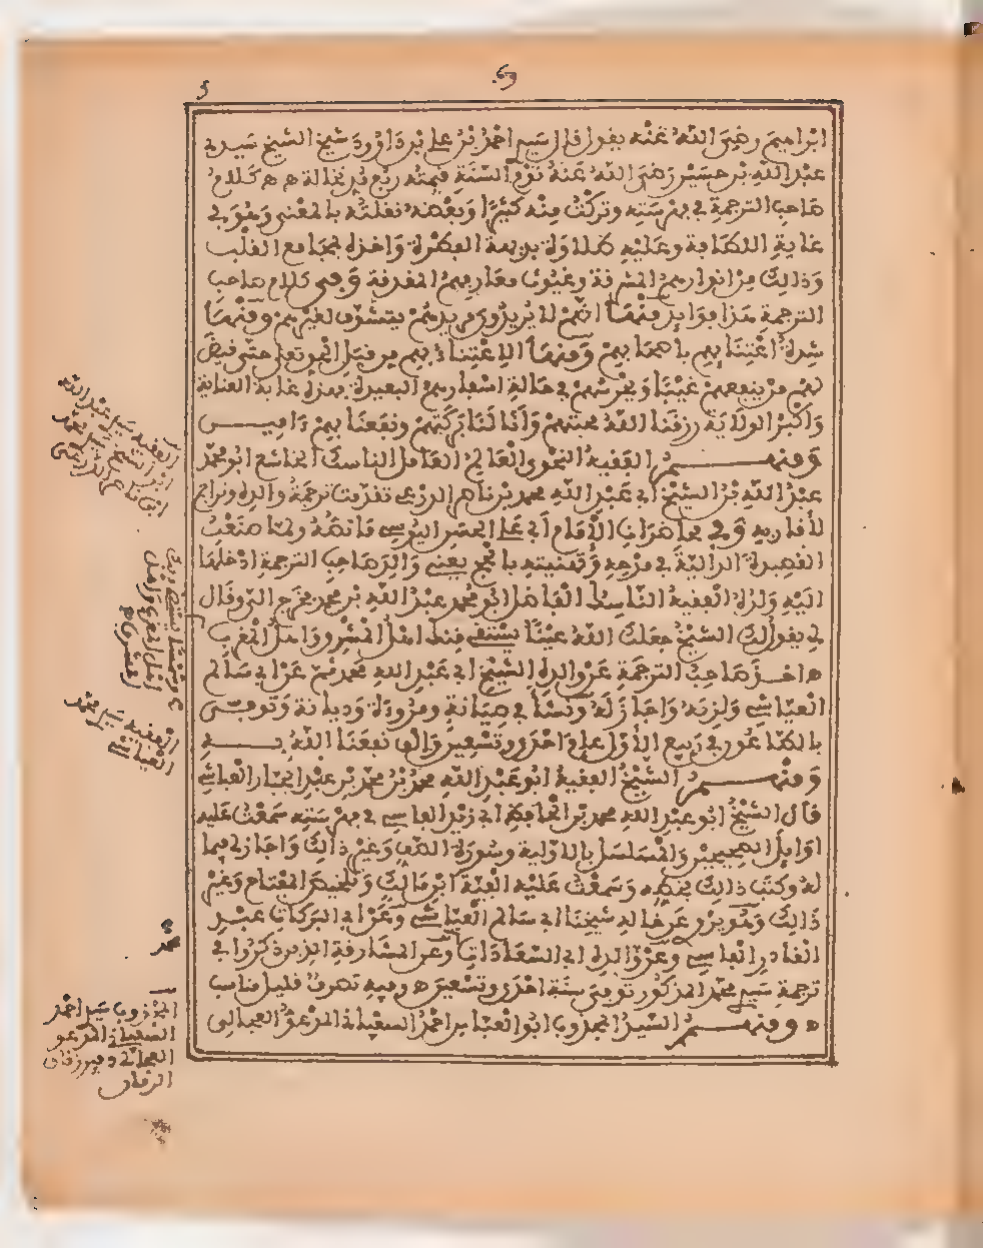 69
5
ابراهيم رضي الله عنه يقول قال سيد احمد بن علي بن داوود شيخ الشيخ سيدي
عبد الله بن حسين رضي الله عنه نوم السنة قيمته ربع فـ نخالة هـ كلام
صاحب الترجمة في فهرسته وتركت منه كثيرا وبعضه نقلته بالمعنى وهو في
غاية وعليه طلاوة الفطرة واخذه بمجامع القلب
وذالك من انوارهم المشرفة وعيون معارفهم المغدقة وفي كلام صاحب
الترجمة هذا فوايد منها انهم لا يريدون لغيرهم ومنها
شدة اعتناءهم باصحابهم ومنها الاعتناء بهم من قبل الحق تعلى حتى فيض
لهم من ينفعهم غيبا ويحرسهم في حالة اسفارهم فهذه غاية العناية
واكبر الولاية رزقنا الله محبتهم وانالنا بركتهم ونفعنا بهم ءاميـــن
ومنهـــــم الفقيه النحوي العالم العامل الناسك الخاشع ابو محمد
عبد الله بن الشيخ ابي عبد الله محمد بن ناصر الدرعي تقدمت ترجمة والده وتراجم
لأقاربه وفي محاضرات الإمام أبي علي الحسن اليوسي ما نصه ولما صنعت
القصيدة الدالية في مدحه وتهنيته بالحج يعني والد صاحب الترجمة ادخلها
اليه ولده الفقيه الناسك الفاضل ابو محمد عبد الله بن محمد فخرج الي وقال
لي يقول لك الشيخ جعلك الله عينا يستقي منها اهل المشرق واهل المغرب
ه اخذ صاحب الترجمة عن والده الشيخ ابي عبد الله محمد وعن ابي سالم
العياشي ولزمه واجاز له ونشأ في صيانة ومروءة وديانة وتوفي
بالطاعون في ربيع الأول عام احدى وتسعين والف نفعنا الله بـــــه
ومنهـــــم الشيخ الفقيه ابو عبد الله محمد بن محمد بن عبد الجبار العياشي
قال الشيخ ابو عبد الله محمد بن الحافظ ابي زيد الفاسي في فهرسته سمعت عليه
اوايل الصحيحين والمسلسل بالاولية وسورة الصف وغير ذالك واجازني فيما
له وكتب ذالك بخطه وسمعت عليه الفية ابن مالك وتلخيص المفتاح وغير
ذالك وهو يروي عن خاله شيخنا ابي سالم العياشي وعن ابي البركات عبد
القادر الفاسي وعن والده ابي السعادات وعن المشارقة الذين ذكروا في
ترجمة سيد محمد المذكور توفي سنة احدى وتسعين ه وفيه تصرف قليل مناسب
ه ومنهـــــم السيد المجذوب ابو العباس احمد السفياني المدعو العيالي
الفقيه سيد عبد الله
ابن الشيخ سيد محمد
ابن ناصر الدرعي
اهل المغرب واهل
الفقيه سيد محمد
العياشي
المجذوب سيد احمد
السفياني المدعو